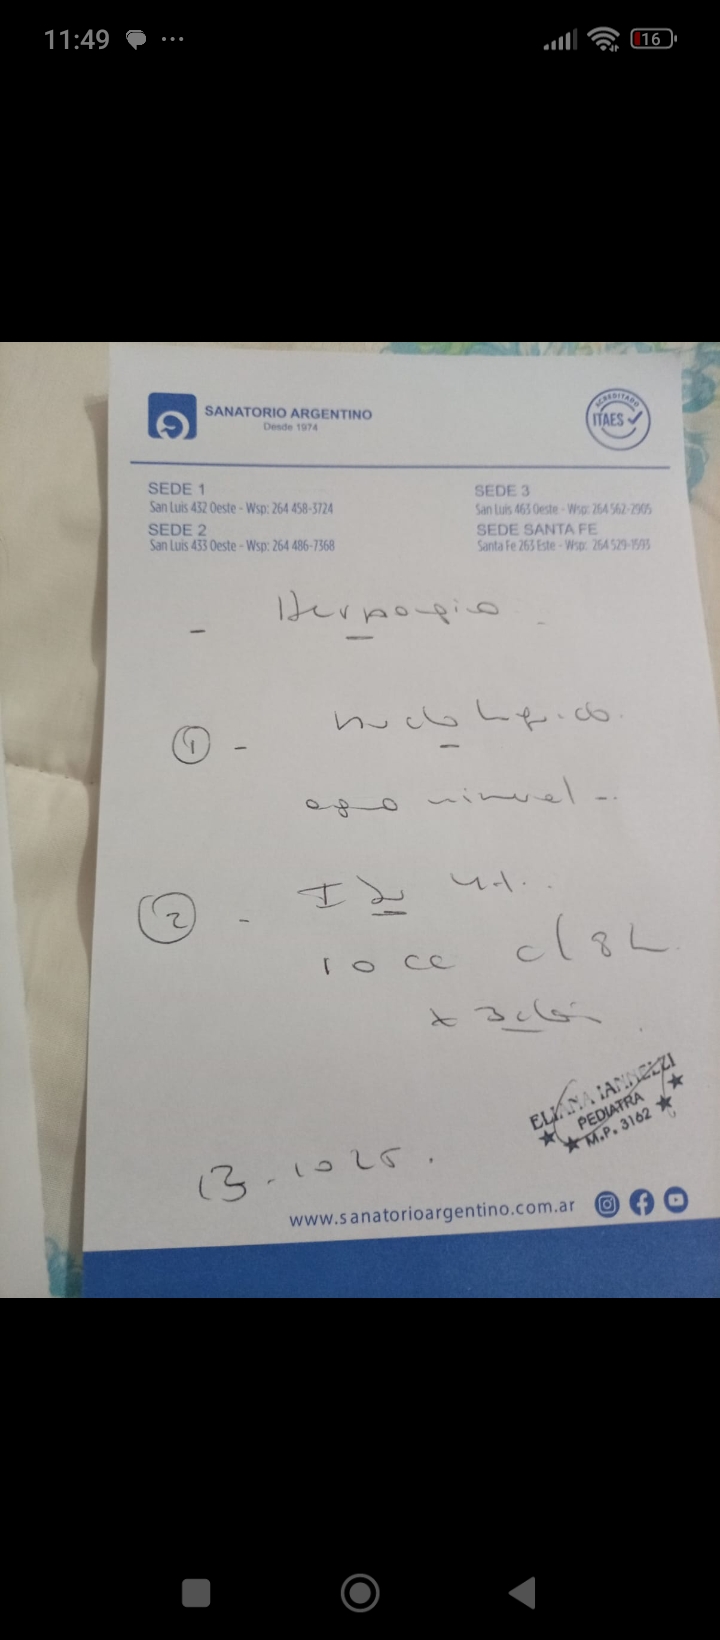 11:49
16
SANATORIO ARGENTINO
Desde 1974
ACREDITADO
ITAES
SEDE 1
San Luis 432 Oeste - Wsp: 264 458-3724
SEDE 2
San Luis 433 Oeste - Wsp: 264 486-7368
SEDE 3
San Luis 463 Oeste - Wsp: 264 562-2905
SEDE SANTA FE
Santa Fe 263 Este - Wsp: 264 529-1593
- Herpangina
① - líquido
agua mineral
② -
10 cc c/8 h
x 3 días
ELIANA IANNEZZI
PEDIATRA
M.P. 3162
13-10 25.
www.sanatorioargentino.com.ar